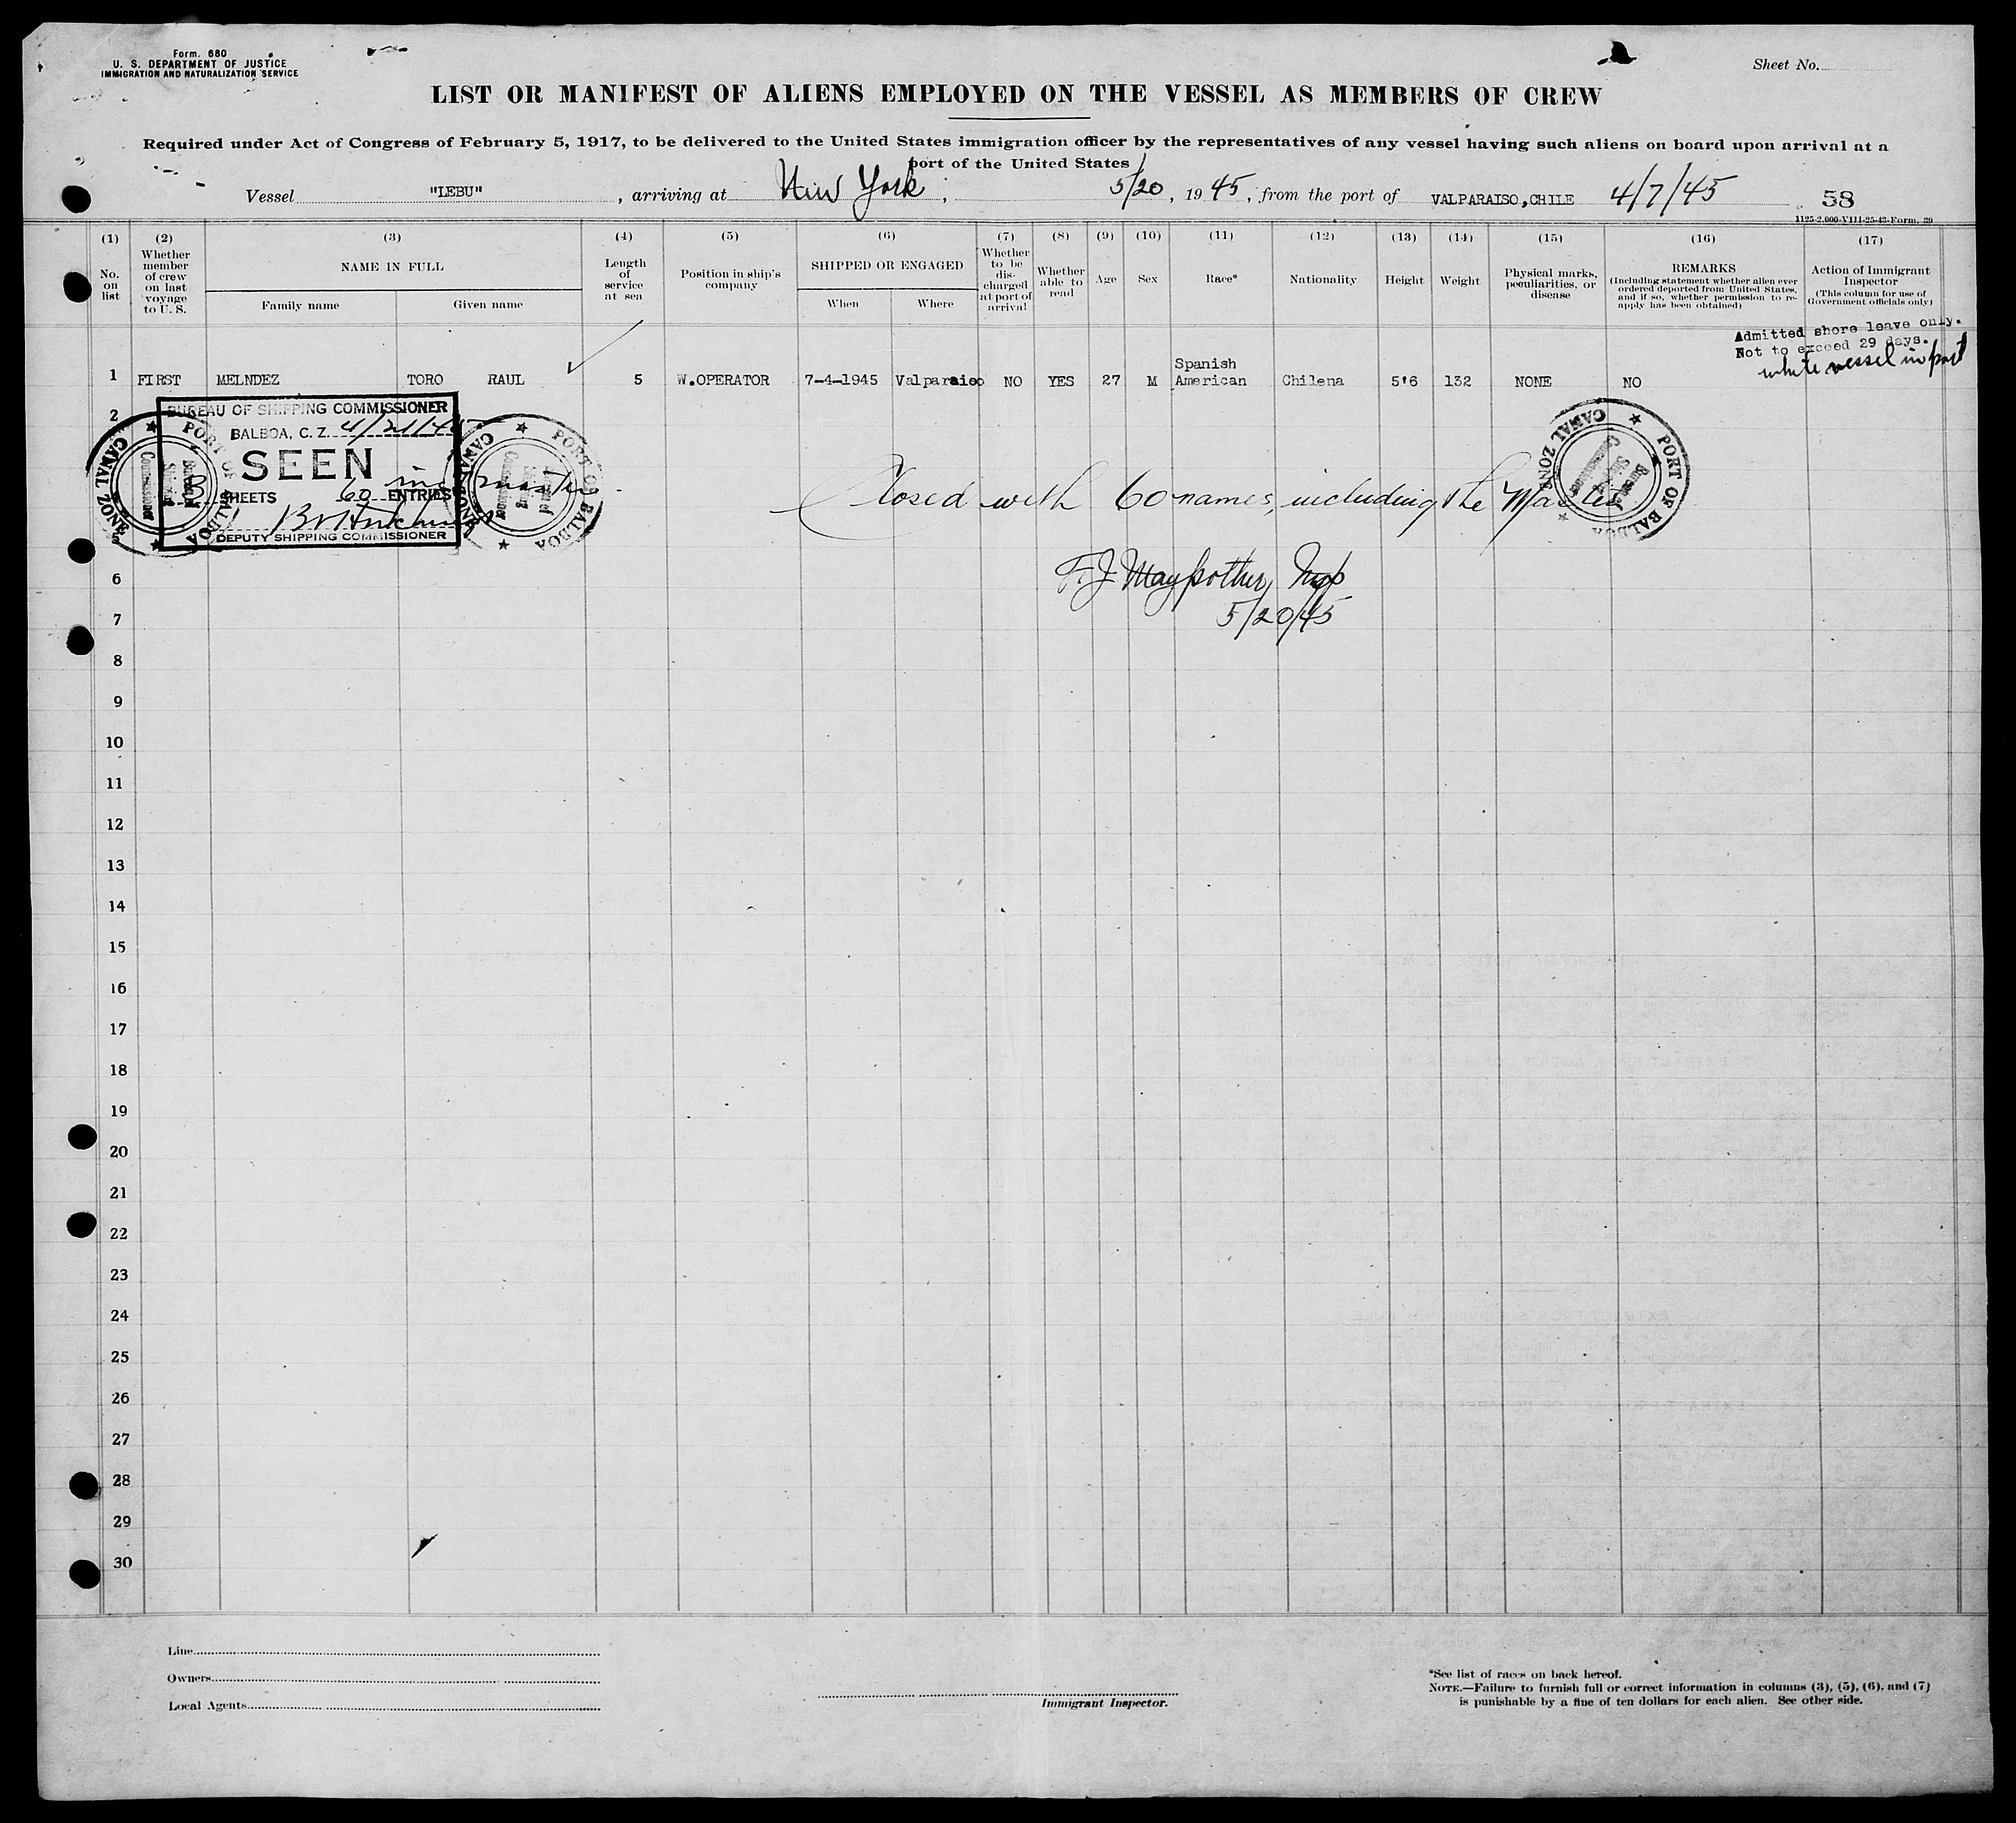 Form. 680
U. S. DEPARTMENT OF JUSTICE
IMMIGRATION AND NATURALIZATION SERVICE
Sheet No.
LIST OR MANIFEST OF ALIENS EMPLOYED ON THE VESSEL AS MEMBERS OF CREW
Required under Act of Congress of February 5, 1917, to be delivered to the United States immigration officer by the representatives of any vessel having such aliens on board upon arrival at a
port of the United States
Vessel "LEBU" , arriving at New York , 5/20 , 19 45 , from the port of VALPARAISO,CHILE 4/7/45 58
1125-2.000-VIII-25-43-Form. 39
(1) (2) (3) (4) (5) (6) (7) (8) (9) (10) (11) (12) (13) (14) (15) (16) (17)
No. on list
Whether member of crew on last voyage to U. S.
NAME IN FULL
Family name Given name
Length of service at sea
Position in ship's company
SHIPPED OR ENGAGED
When Where
Whether to be discharged at port of arrival
Whether able to read
Age
Sex
Race*
Nationality
Height
Weight
Physical marks, peculiarities, or disease
REMARKS
(Including statement whether alien ever ordered deported from United States, and if so, whether permission to re-apply has been obtained)
Action of Immigrant Inspector
(This column for use of Government officials only)
Admitted shore leave only.
Not to exceed 29 days.
while vessel in port
1 FIRST MELNDEZ TORO RAUL 5 W.OPERATOR 7-4-1945 Valparaiso NO YES 27 M Spanish American Chilena 5'6 132 NONE NO
2
BUREAU OF SHIPPING COMMISSIONER
BALBOA, C. Z. 4/21/45
SEEN
3 SHEETS 60 ENTRIES inc master
DEPUTY SHIPPING COMMISSIONER
PORT OF BALBOA
CANAL ZONE
PORT OF BALBOA
CANAL ZONE
PORT OF BALBOA
CANAL ZONE
Closed with 60 names, including the Master
5
6
F. J. Maypother, Insp
5/20/45
7
8
9
10
11
12
13
14
15
16
17
18
19
20
21
22
23
24
25
26
27
28
29
30
Line
Owners
Local Agents
Immigrant Inspector.
*See list of races on back hereof.
NOTE.—Failure to furnish full or correct information in columns (3), (5), (6), and (7)
is punishable by a fine of ten dollars for each alien. See other side.